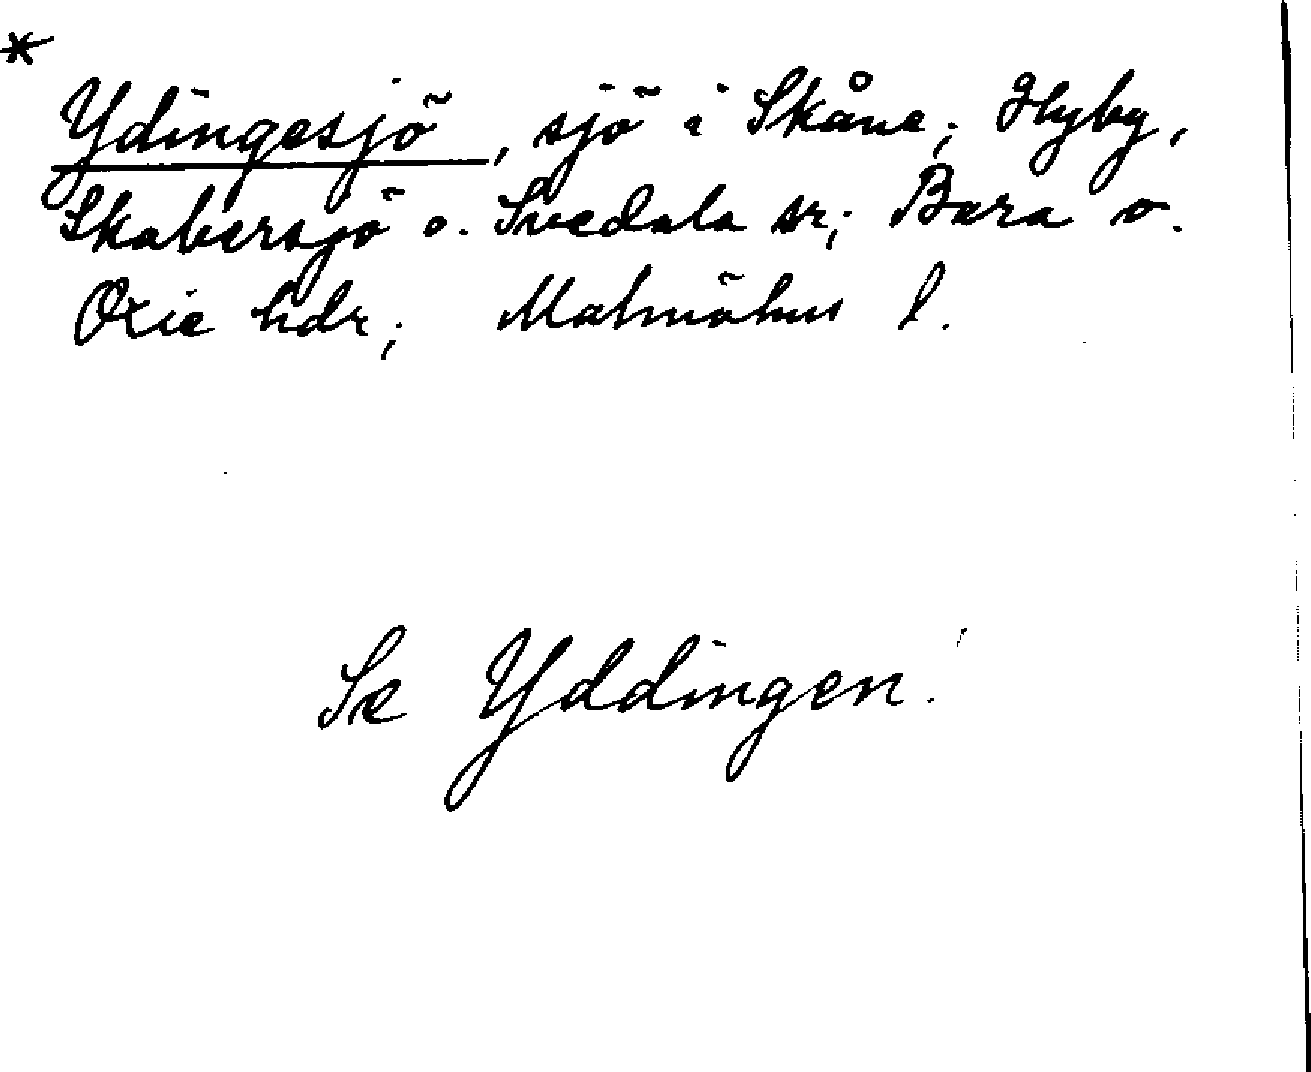 *
Ydingesjö, sjö i Skåne; Hyby,
Skabersjö o. Svedala sr; Bara o.
Oxie hdr; Malmöhus l.
Se Yddingen.